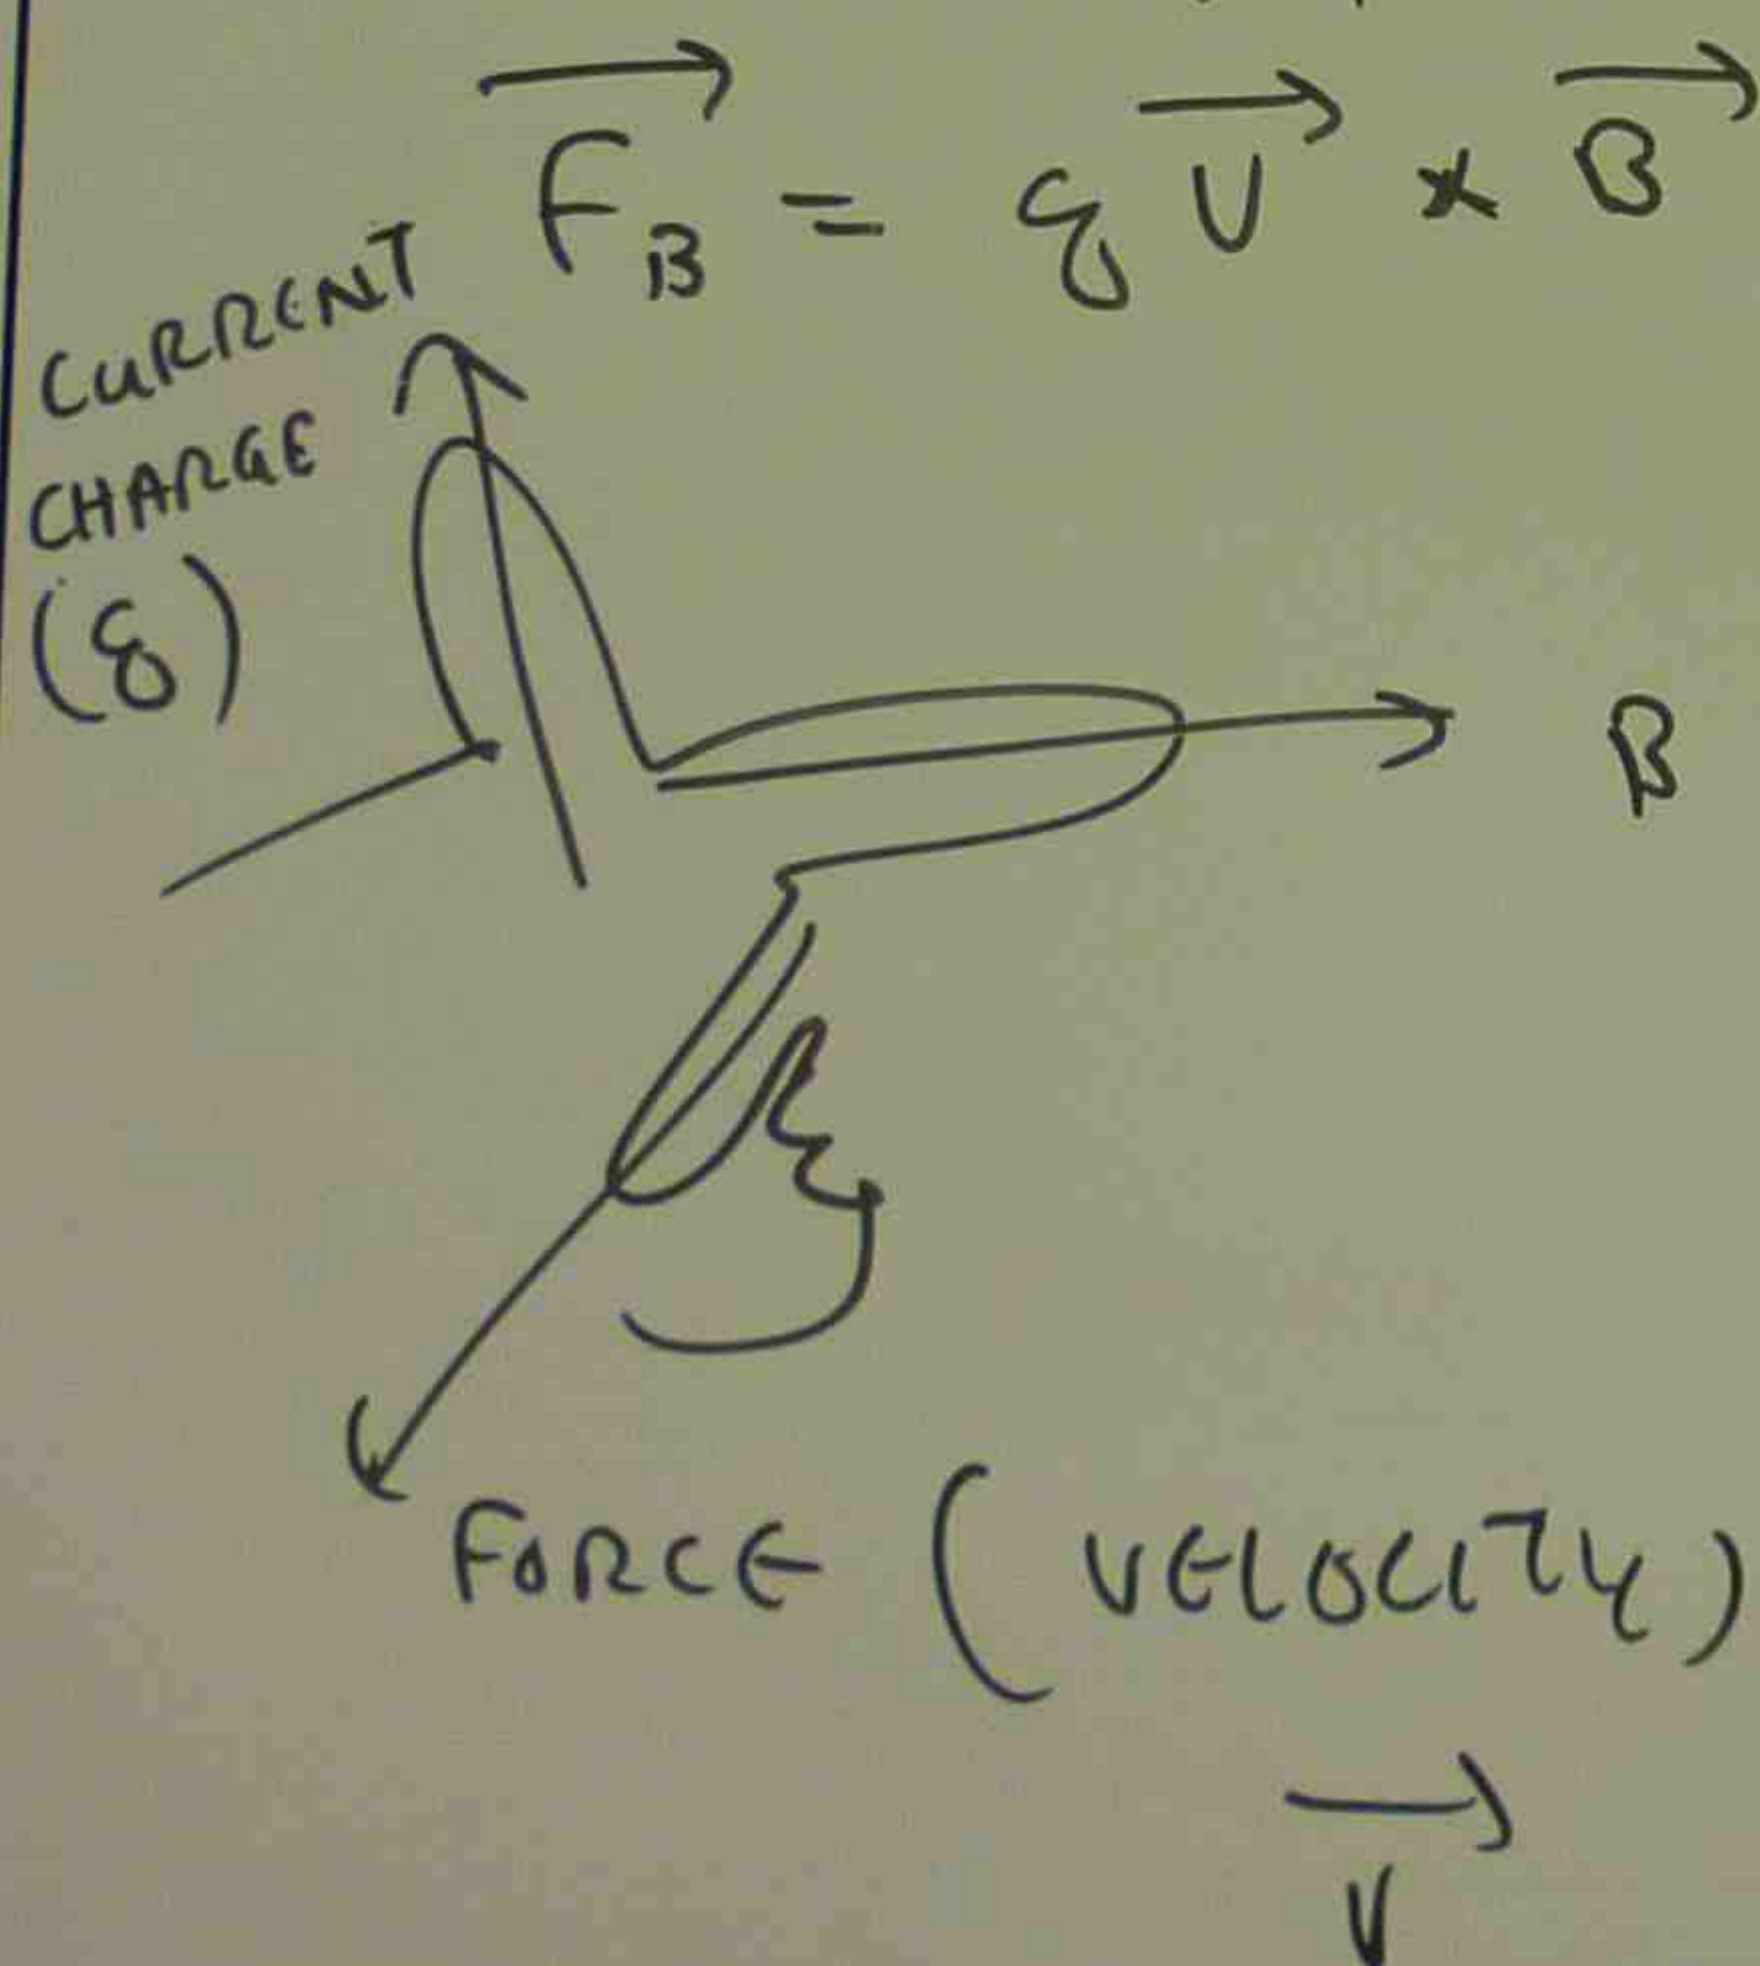 F_B = q V × B
CURRENT
CHARGE
(q)
B
FORCE (VELOCITY)
V